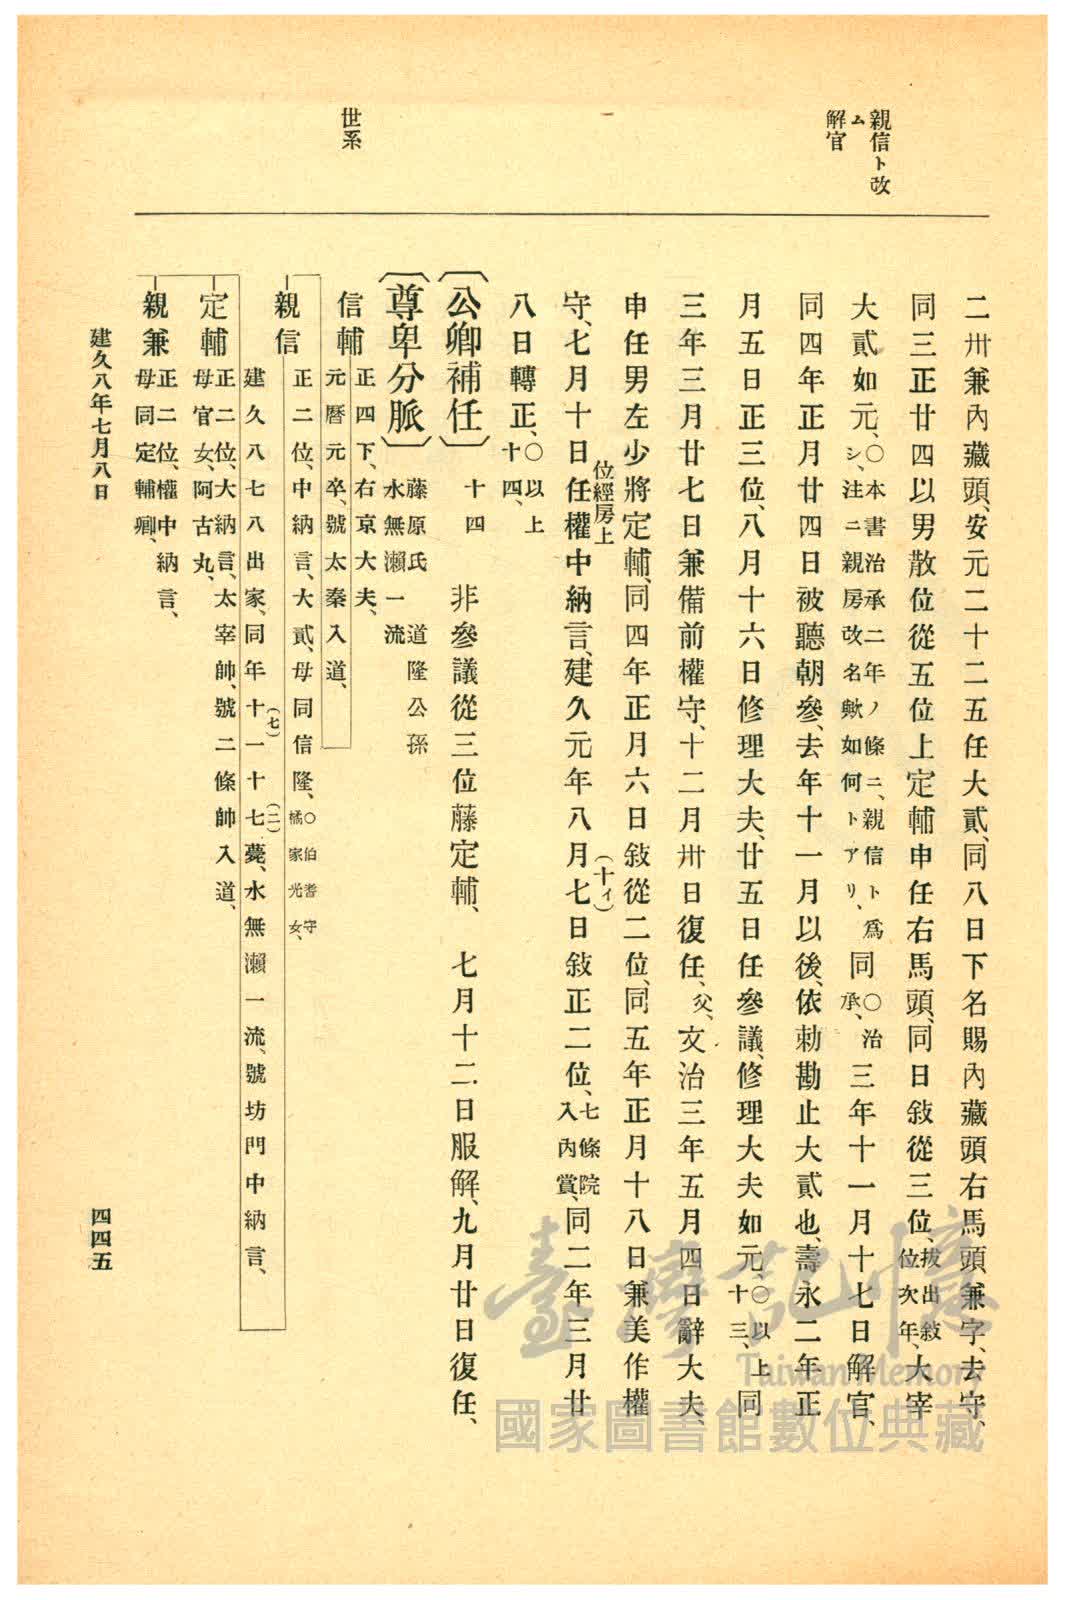 親信ト改
ム
解官
世系
二卅兼內藏頭、安元二十二五任大貳、同八日下名賜內藏頭右馬頭、兼字、去守、
同三正廿四以男散位從五位上定輔申任右馬頭、同日敍從三位、拔出敍位次年、大宰
大貳如元、〇本書治承二年ノ條ニ、親信ト爲シ、注ニ親房改名歟如何トアリ、同〇治承、三年十一月十七日解官、
同四年正月廿四日被聽朝參、去年十一月以後、依勅勘止大貳也、壽永二年正
月五日正三位、八月十六日修理大夫、廿五日任參議、修理大夫如元、〇以上十三、同
三年三月廿七日兼備前權守、十二月卅日復任、父、文治三年五月四日辭大夫、
申任男左少將定輔、同四年正月六日敍從二位、同五年正月十八日兼美作權
位經房上
(十イ)
守、七月十日任權中納言、建久元年八月七日敍正二位、七條院入內賞、同二年三月廿
八日轉正、〇以上十四、
〔公卿補任〕十四 非參議從三位藤定輔、 七月十二日服解、九月廿日復任、
〔尊卑分脈〕藤原氏 道隆公孫
水無瀨一流
信輔 正四下、右京大夫、
元曆元卒、號太秦入道、
親信 正二位、中納言、大貳、母同信隆、〇伯耆守橘家光女、
(七)
(二)
建久八七八出家、同年十一十七薨、水無瀨一流、號坊門中納言、
定輔 正二位、大納言、太宰帥、號二條帥入道、
母官女、阿古丸、
親兼 正二位、權中納言、
母同定輔卿、
建久八年七月八日
四四五
臺灣記憶
Taiwan Memory
國家圖書館數位典藏